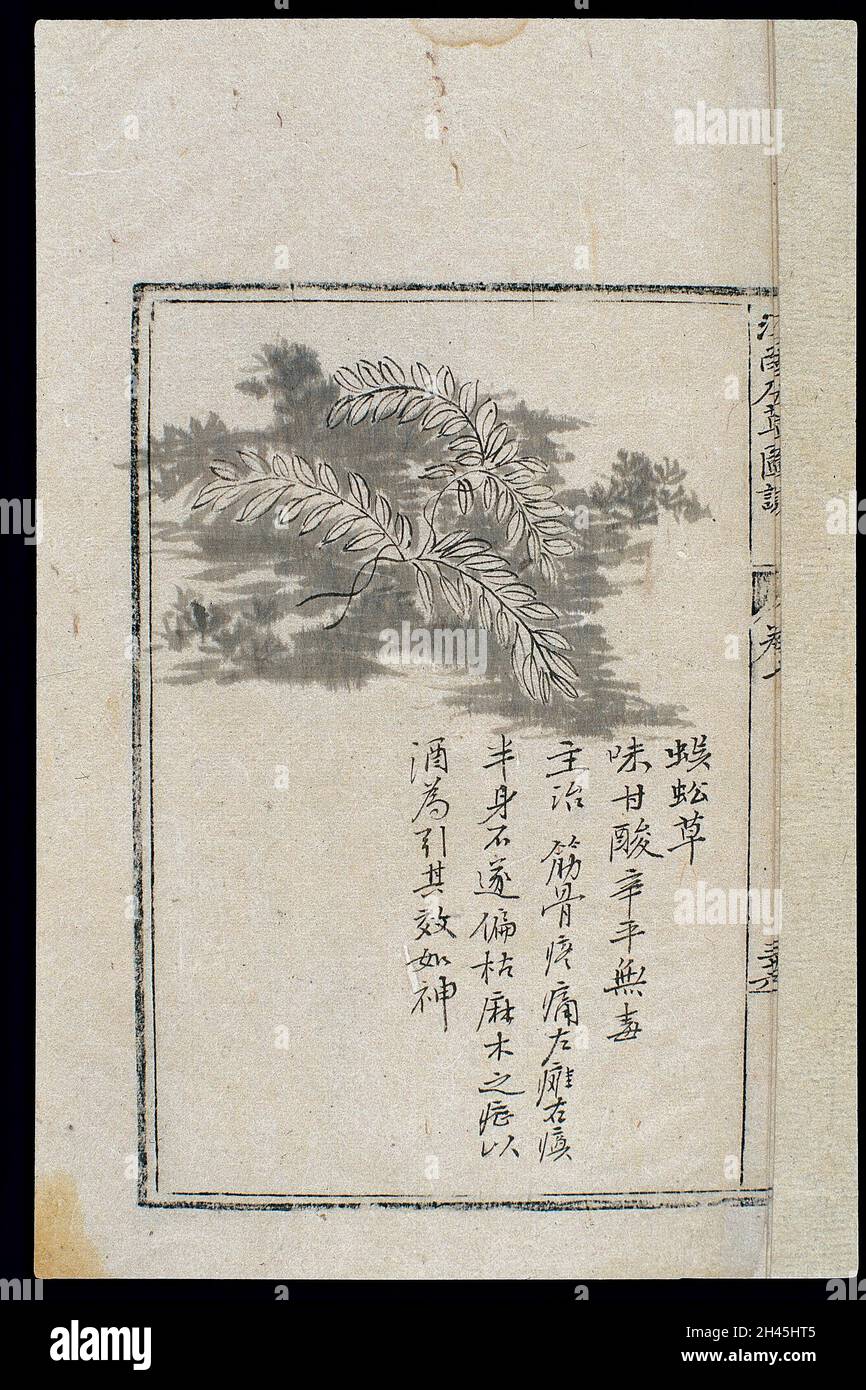 蜈蚣草
味甘酸辛平無毒
主治 筋骨疼痛左癱右瘓
半身不遂偏枯麻木之症以
酒為引其效如神
卷一
alamy
Image ID: 2H45HT5
www.alamy.com